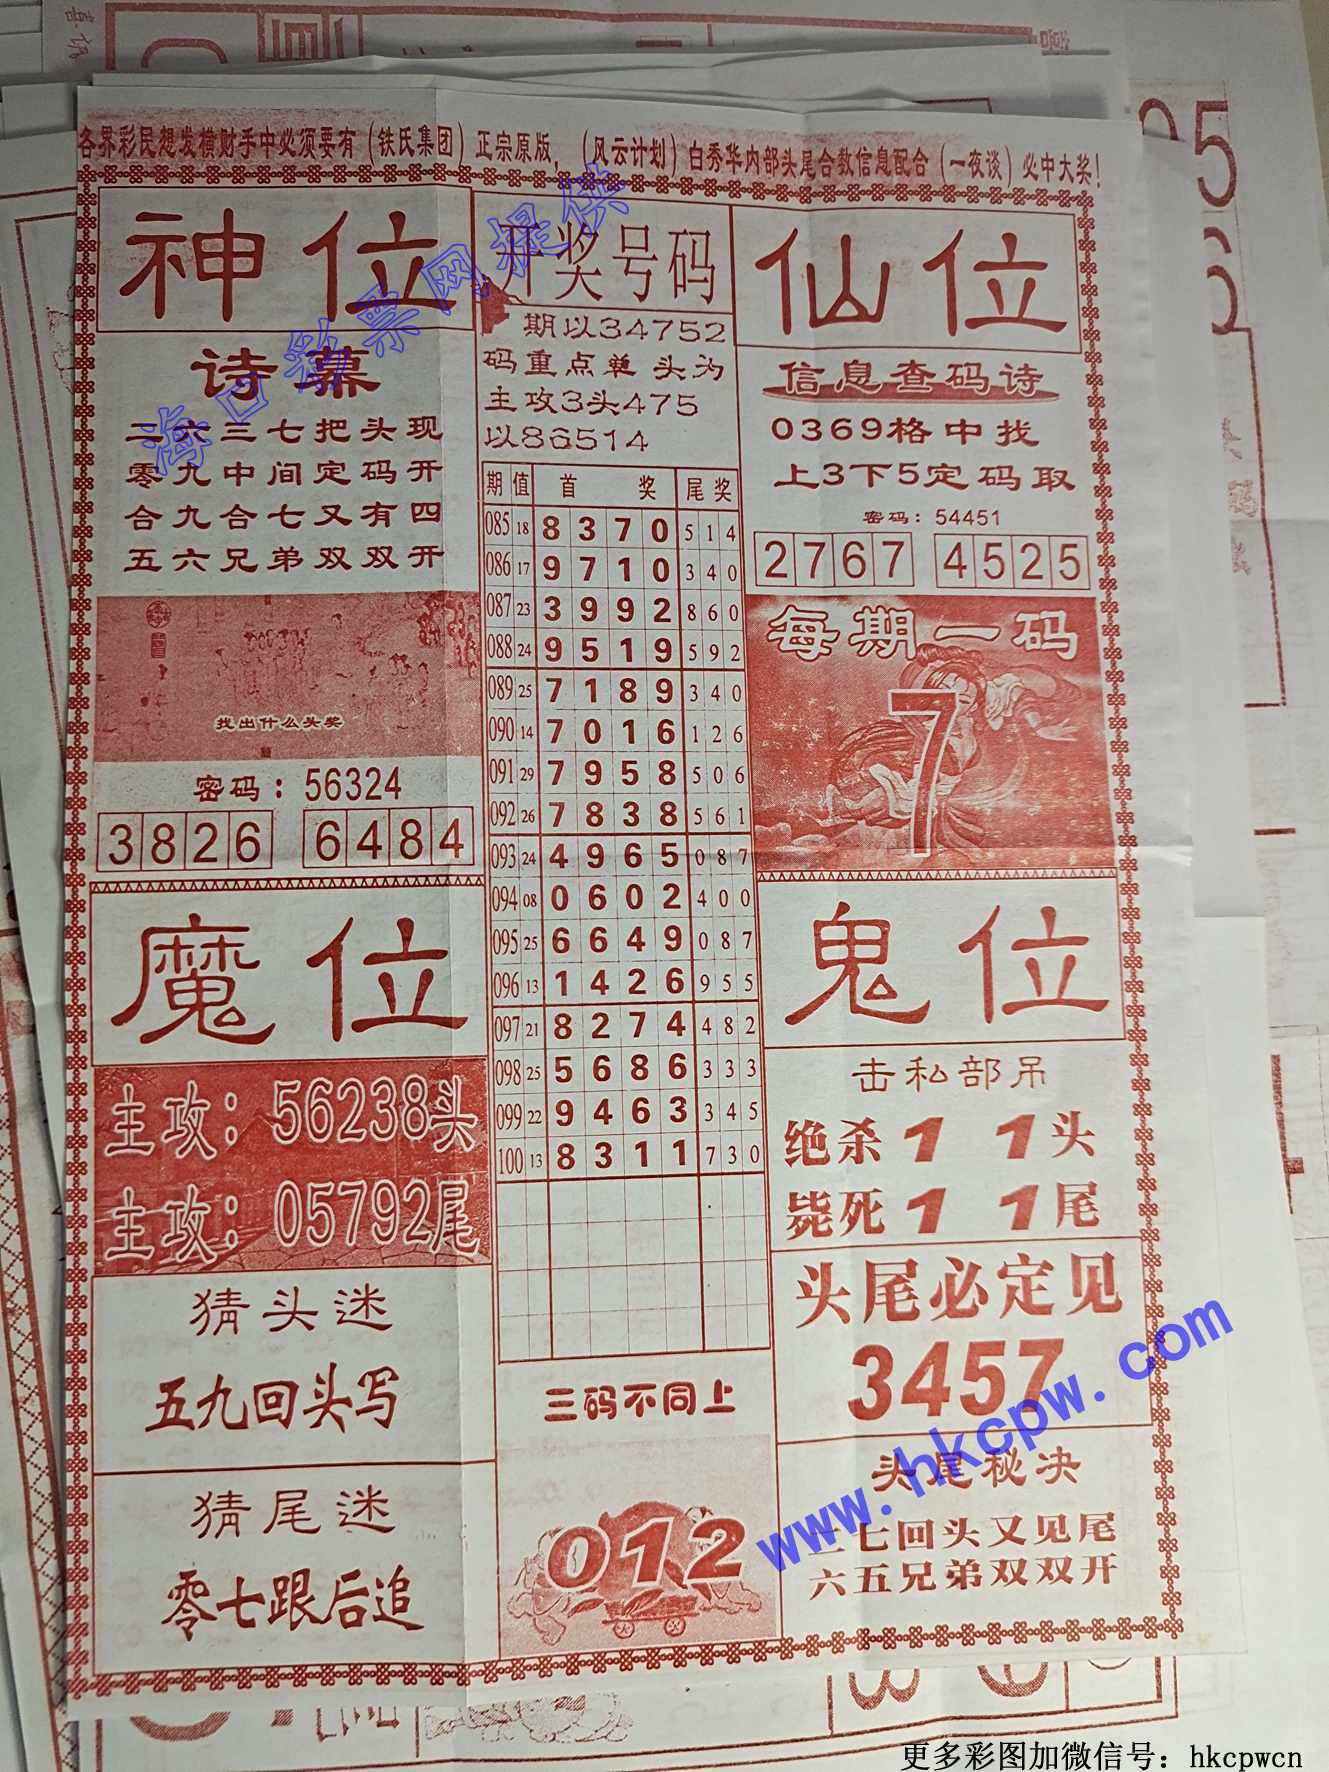 各界彩民想发横财手中必须要有（铁氏集团）正宗原版，（风云计划）白秀华内部头尾合数信息配合（一夜谈）必中大奖！
神位
诗幕
二六三七把头现
零九中间定码开
合九合七又有四
五六兄弟双双开
找出什么头奖
密码：56324
3826 6484
开奖号码
期以34752
码重点单 头为
主攻3头475
以86514
期 值 首 奖 尾 奖
085 18 8 3 7 0 5 1 4
086 17 9 7 1 0 3 4 0
087 23 3 9 9 2 8 6 0
088 24 9 5 1 9 5 9 2
089 25 7 1 8 9 3 4 0
090 14 7 0 1 6 1 2 6
091 29 7 9 5 8 5 0 6
092 26 7 8 3 8 5 6 1
093 24 4 9 6 5 0 8 7
094 08 0 6 0 2 4 0 0
095 25 6 6 4 9 0 8 7
096 13 1 4 2 6 9 5 5
097 21 8 2 7 4 4 8 2
098 25 5 6 8 6 3 3 3
099 22 9 4 6 3 3 4 5
100 13 8 3 1 1 7 3 0
三码不同上
012
仙位
信息查码诗
0369格中找
上3下5定码取
密码：54451
2767 4525
每期一码
7
魔位
主攻：56238头
主攻：05792尾
猜头迷
五九回头写
猜尾迷
零七跟后追
鬼位
击私部吊
绝杀1 1头
毙死1 1尾
头尾必定见
3457
头尾秘决
二七回头又见尾
六五兄弟双双开
海口彩票网提供
www.hkcpw.com
更多彩图加微信号：hkcpwcn